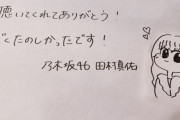 聴いてくれてありがとう!
くたのしかったです!
乃木坂46 田村真佑